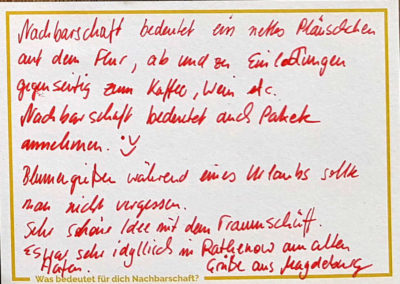 Nachbarschaft bedeutet ein nettes Pläuschchen
auf dem Flur, ab und zu Einladungen
gegenseitig zum Kaffee, Wein etc.
Nachbarschaft bedeutet auch Pakete
annehmen.
Blumengießen während eines Urlaubs sollte
man nicht vergessen.
Sehr schöne Idee mit dem Traumschiff.
Es war sehr idyllisch in Rathenow am alten
Hafen. Grüße aus Magdeburg
Was bedeutet für dich Nachbarschaft?